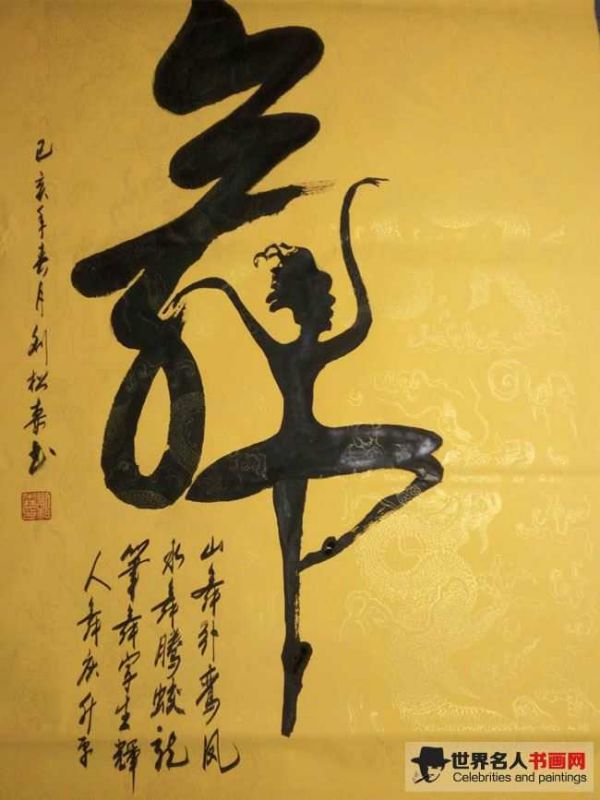 舞
山舞引鸾凤
水舞腾蛟龙
笔舞字生辉
人舞庆升平
己亥年春月刘松来书
世界名人书画网
Celebrities and paintings